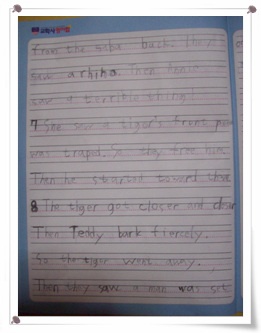 from the saba bark. They
saw a rhino. Then Annie
saw a terrible thing!
7 She saw a tiger's front paw
was traped. So they free him.
Then he started toward them
8 The tiger got closer and closer
Then Teddy bark fiercely.
So the tiger went away.
Then they saw a man was sit